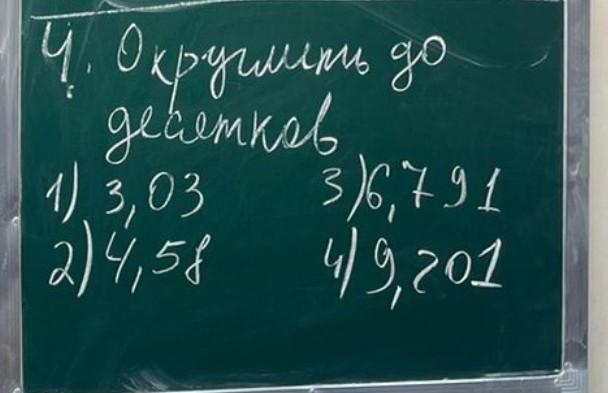 4. Округлить до
десятков
1) 3,03 3) 6,791
2) 4,58 4) 9,201